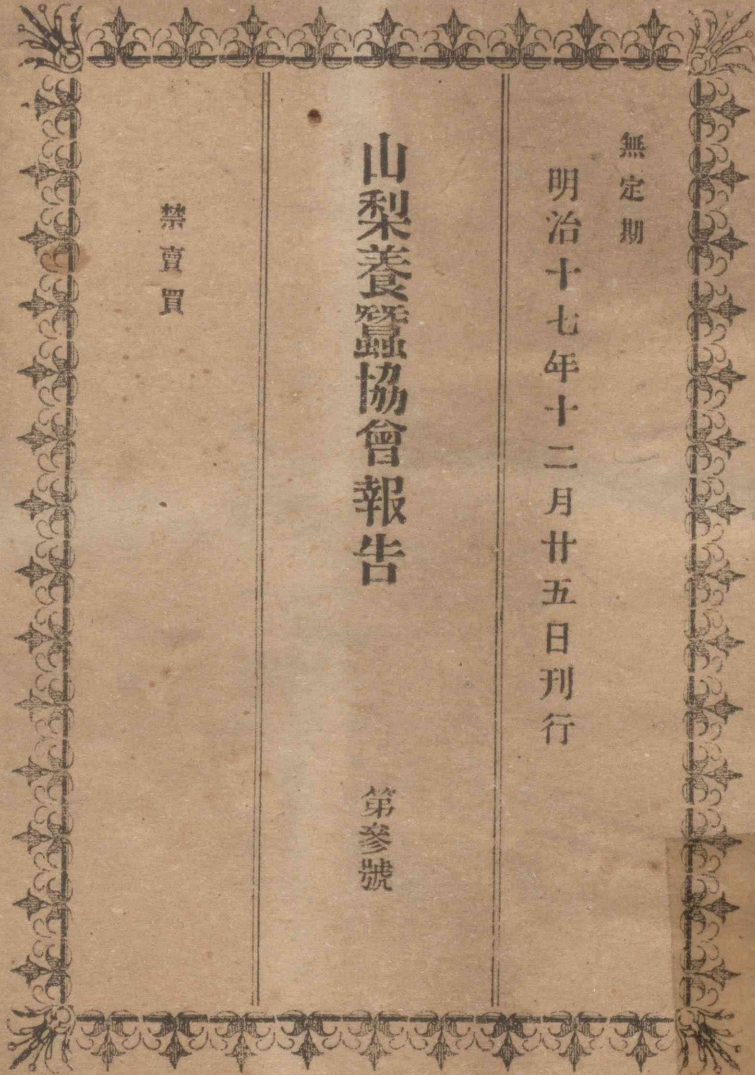 無定期
明治十七年十二月廿五日刊行
山梨養蠶協會報告
第參號
禁賣買